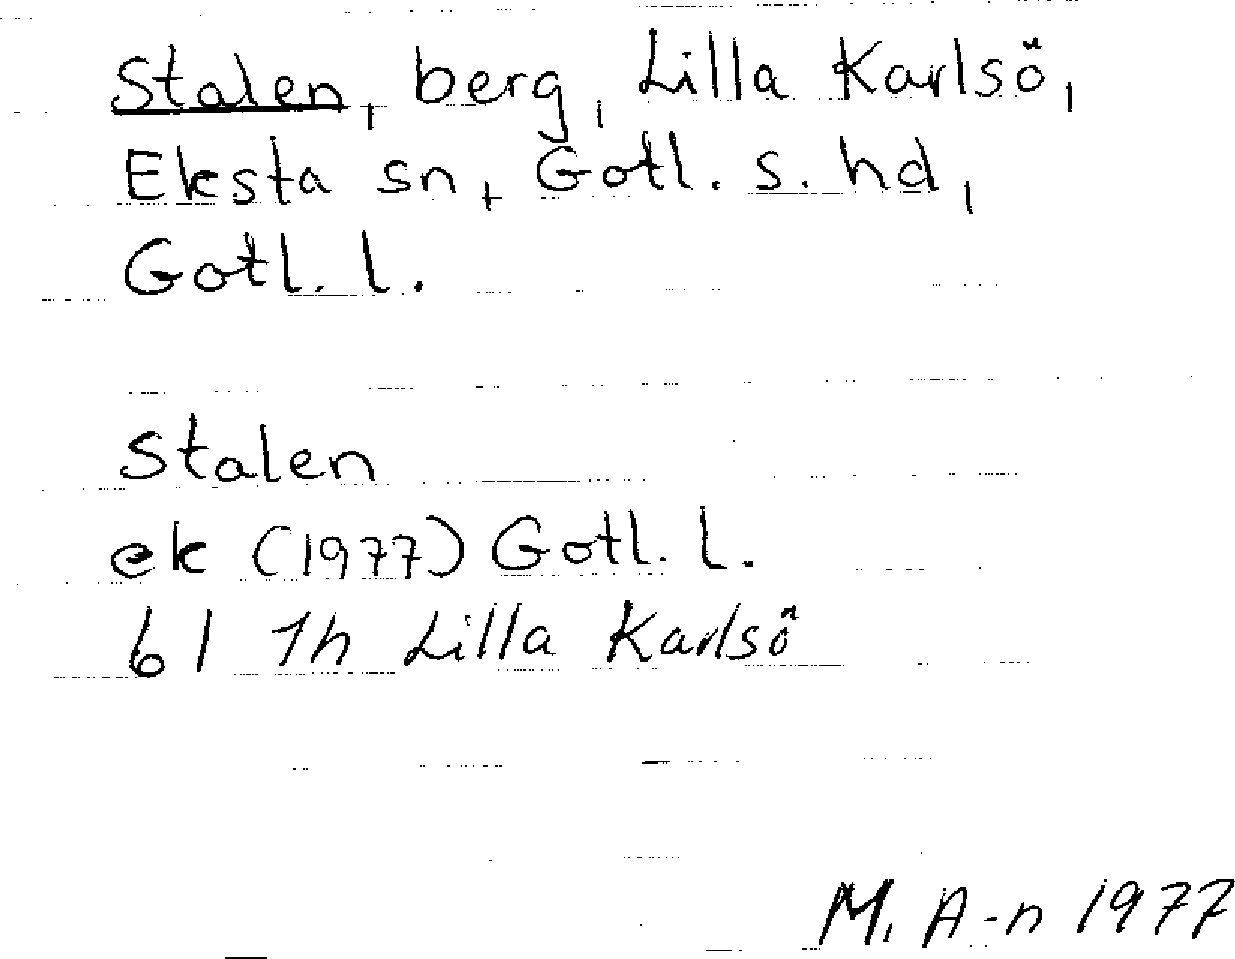 Stalen, berg, Lilla Karlsö,
Eksta sn, Gotl. s. hd,
Gotl. l.
Stalen
ek (1977) Gotl. l.
bl 1h Lilla Karlsö
M. A-n 1977